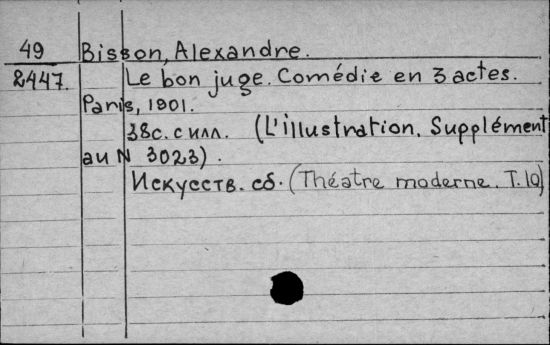 49 Bisson, Alexandre.
2447. Le bon juge. Comédie en 3 actes.
Paris, 1901.
38с. с илл. (L'illustration. Supplément
au N 3023).
Искусств. сб. (Théatre moderne. T.10)